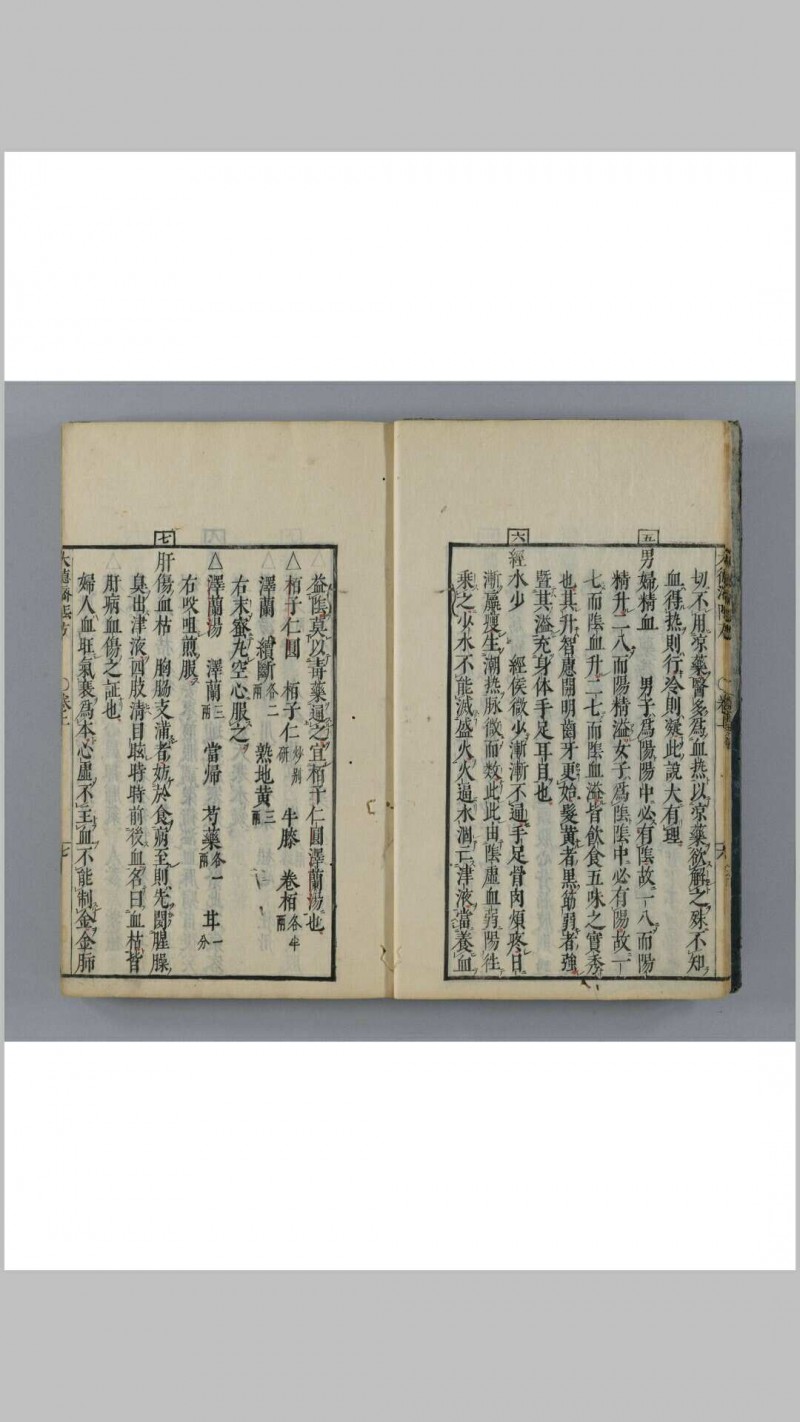 切不用凉藥醫多爲血热以凉藥欲解之殊不知
血得热則行冷則凝此說大有理
五
男婦精血　男子爲陽陽中必有陰故一八而陽
精升二八而陽精溢女子爲陰陰中必有陽故一
七而陰血升二七而陰血溢皆飲食五味之實秀
也其升智惠開明齒牙更始髮黃者黒筋弱者強
暨其溢充身体手足耳目也
六
經水少　經侯微少漸漸不通手足骨肉煩疼日
漸羸瘦生潮热脉微而数此此由陰虚血弱陽往
乗之少水不能减盛火火逼水涸亡津液當養血
益陰莫以毒藥通之宜栢子仁圓澤蘭湯也
△栢子仁圓　栢子仁炒別研　牛膝　卷栢各半兩
澤蘭　續斷各二兩　熟地黄三兩
右末蜜丸空心服之
△澤蘭湯　澤蘭三兩　當帰　芍藥各一兩　甘一分
右㕮咀煎服
七
肝傷血枯　胸脇支滿者妨於食病至則先聞腥臊
臭出津液四肢淸目眩時時前後血名曰血枯皆
肝病血傷之証也
婦人血旺氣衰爲本心虚不主血不能制金金肺